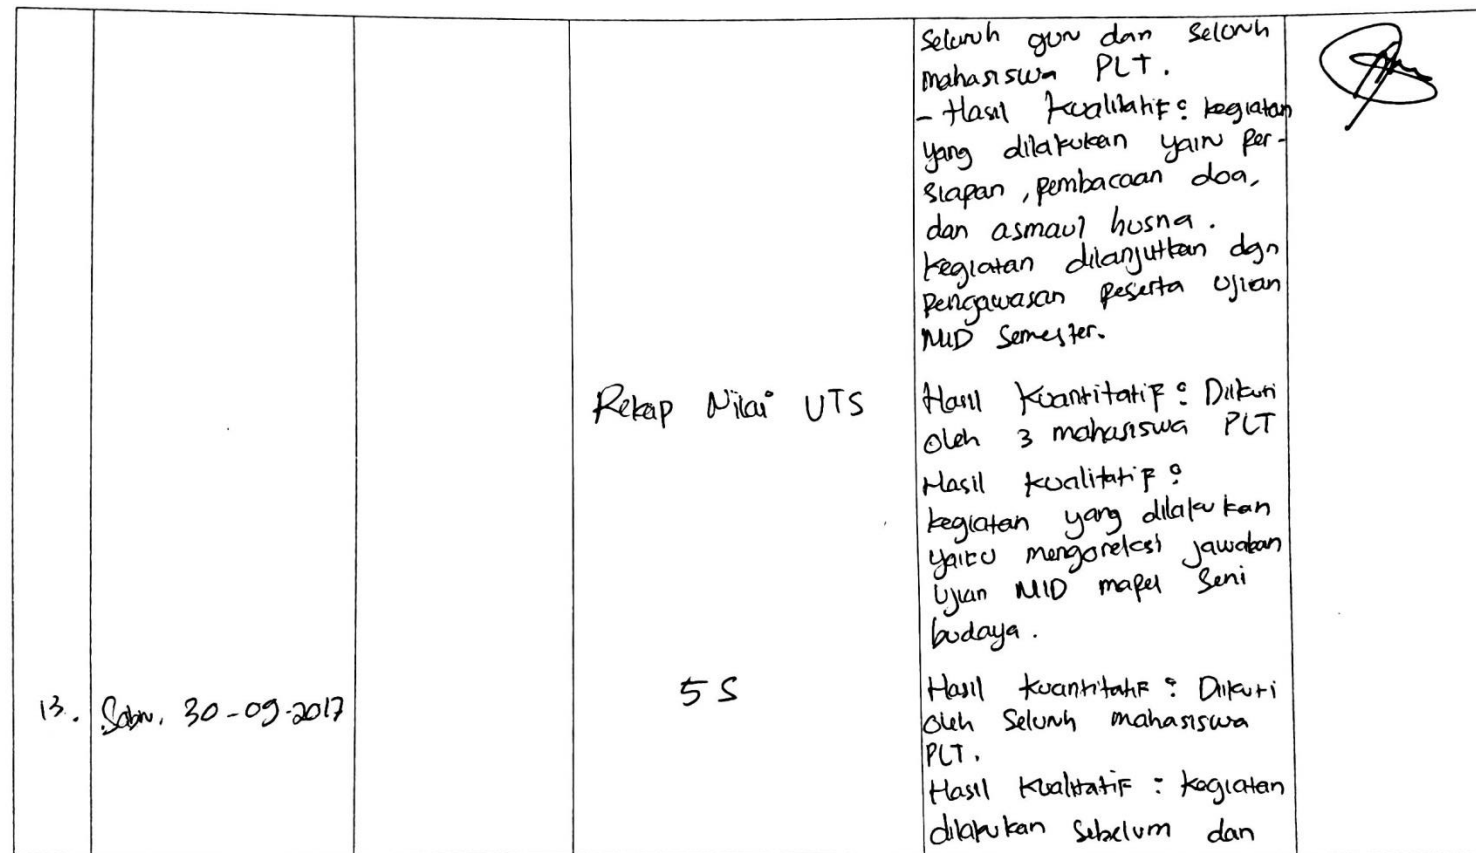 Seluruh guru dan seluruh
mahasiswa PLT.
- Hasil Kualitatif : kegiatan
yang dilakukan yaitu per-
siapan, pembacaan doa,
dan asmaul husna.
kegiatan dilanjutkan dgn
pengawasan peserta ujian
MID Semester.
Rekap Nilai UTS
Hasil Kuantitatif : Diikuti
oleh 3 mahasiswa PLT
Hasil kualitatif :
kegiatan yang dilakukan
yaitu mengoreksi jawaban
Ujian MID mapel Seni
budaya.
13. Sabtu, 30-09-2017
5 S
Hasil kuantitatif : Diikuti
oleh Seluruh mahasiswa
PLT.
Hasil Kualitatif : kegiatan
dilakukan Sebelum dan